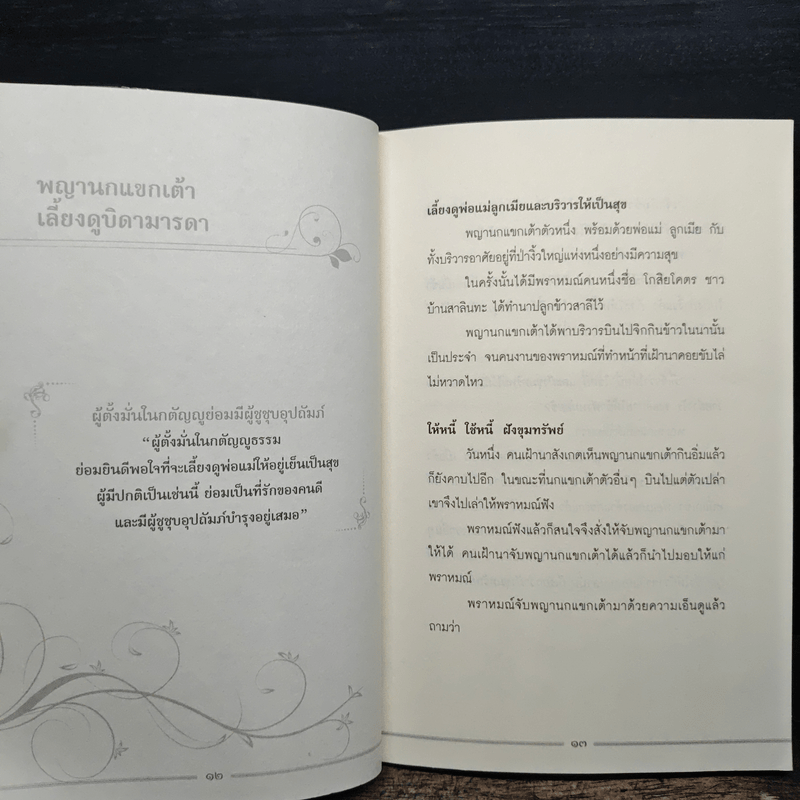 พญานกแขกเต้า
เลี้ยงดูบิดามารดา
ผู้ตั้งมั่นในกตัญญูย่อมมีผู้ชูชุบอุปถัมภ์
“ผู้ตั้งมั่นในกตัญญูธรรม
ย่อมยินดีพอใจที่จะเลี้ยงดูพ่อแม่ให้อยู่เย็นเป็นสุข
ผู้มีปกติเป็นเช่นนี้ ย่อมเป็นที่รักของคนดี
และมีผู้ชูชุบอุปถัมภ์บำรุงอยู่เสมอ”
๑๒
เลี้ยงดูพ่อแม่ลูกเมียและบริวารให้เป็นสุข
พญานกแขกเต้าตัวหนึ่ง พร้อมด้วยพ่อแม่ ลูกเมีย กับ
ทั้งบริวารอาศัยอยู่ที่ป่างิ้วใหญ่แห่งหนึ่งอย่างมีความสุข
ในครั้งนั้นได้มีพราหมณ์คนหนึ่งชื่อ โกสิยโคตร ชาว
บ้านสาลินทะ ได้ทำนาปลูกข้าวสาลีไว้
พญานกแขกเต้าได้พาบริวารบินไปจิกกินข้าวในนานั้น
เป็นประจำ จนคนงานของพราหมณ์ที่ทำหน้าที่เฝ้านาคอยขับไล่
ไม่หวาดไหว
ให้หนี้ ใช้หนี้ ฝังขุมทรัพย์
วันหนึ่ง คนเฝ้านาสังเกตเห็นพญานกแขกเต้ากินอิ่มแล้ว
ก็ยังคาบไปอีก ในขณะที่นกแขกเต้าตัวอื่นๆ บินไปแต่ตัวเปล่า
เขาจึงไปเล่าให้พราหมณ์ฟัง
พราหมณ์ฟังแล้วก็สนใจจึงสั่งให้จับพญานกแขกเต้ามา
ให้ได้ คนเฝ้านาจับพญานกแขกเต้าได้แล้วก็นำไปมอบให้แก่
พราหมณ์
พราหมณ์จับพญานกแขกเต้ามาด้วยความเอ็นดูแล้ว
ถามว่า
๑๓